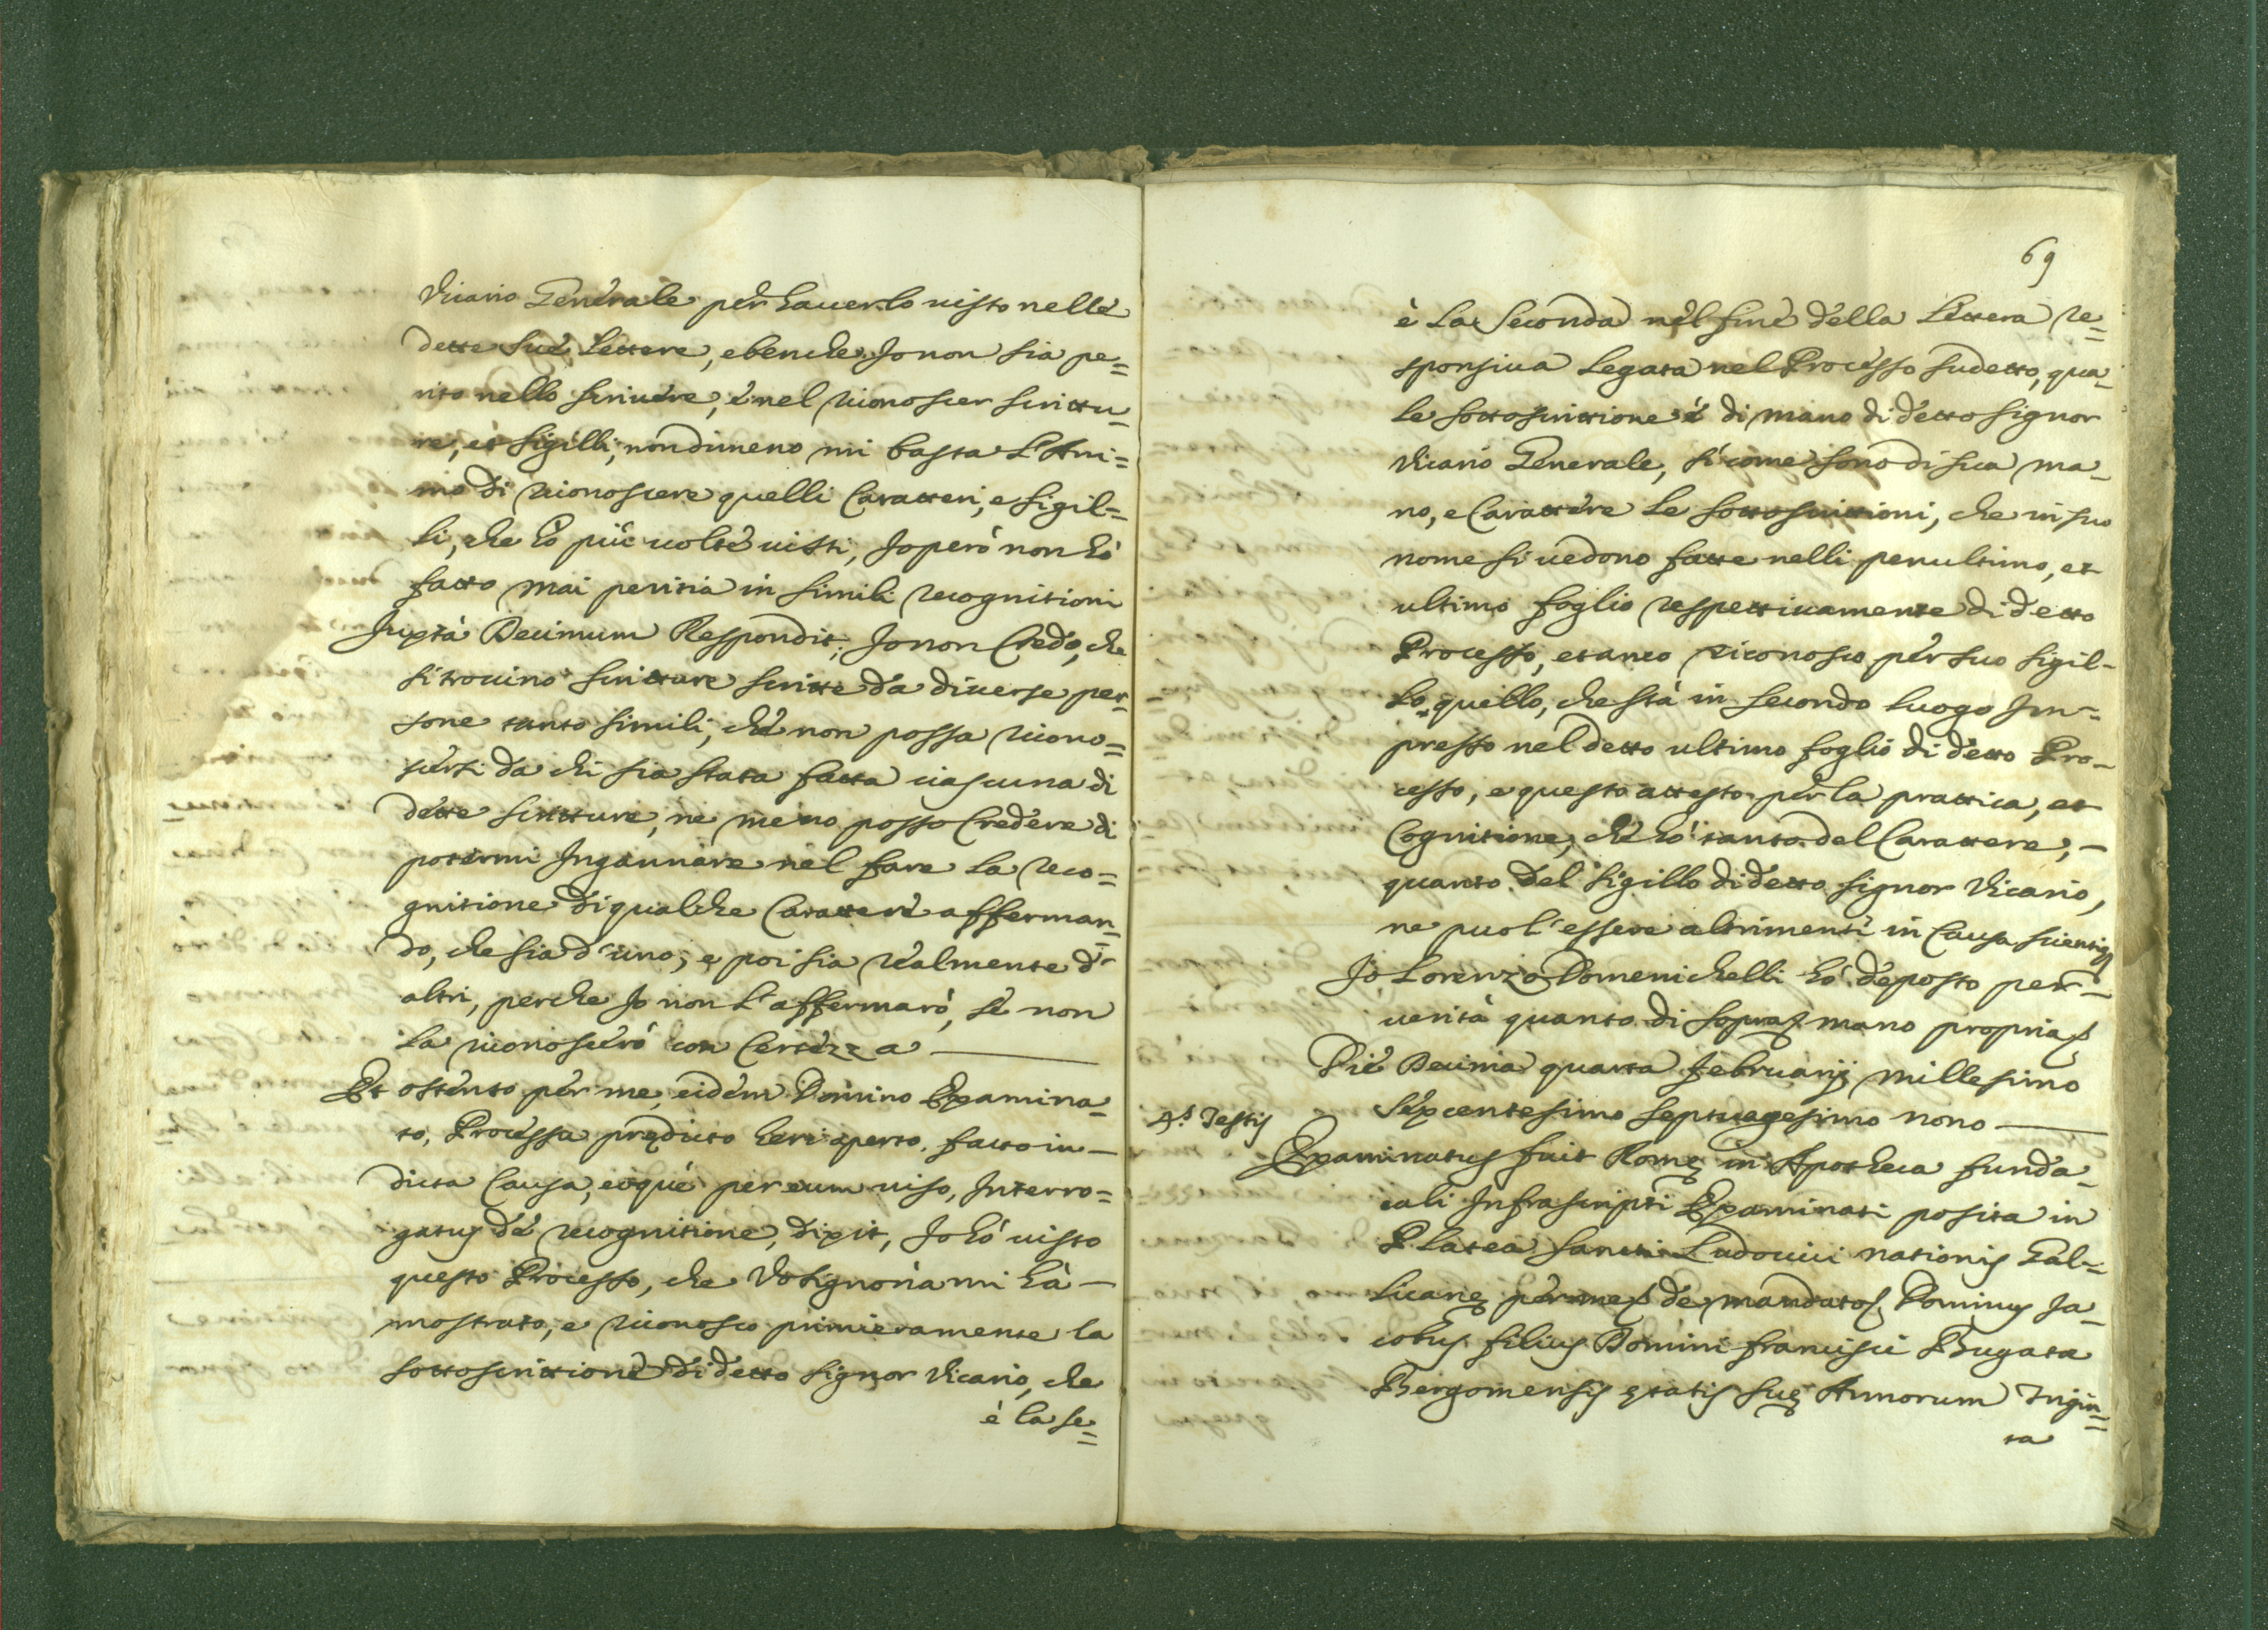 Vicario Generale per hauerlo uisto nelle
dette sue lettere, e benche Io non sia pe=
rito nello scriuere, è nel riconoscer scrittu=
re, et sigilli, nondimeno mi basta l'Ani=
mo di riconoscere quelli Caratteri, e sigil=
li, che hò più uolte uisti, Io però non hò
fatto mai peritia in simili recognitioni
Juxtà Decimum Respondit, Io non Credo, che
si trouino scritture scritte da diuerse per=
sone tanto simili, che non possa ricono=
scersi da chi sia stata fatta ciascuna di
dette scritture, ne meno posso Credere di
potermi Ingannare nel fare la reco=
gnitione di qualche Carattere afferman=
do, che sia d'uno, e poi sia realmente d'
altri, perche Io non l'affermarò, se non
la riconoscerò con Certezza —
Et ostenso per me, eidem Domino Examina=
to, Processu prędicto heri aperto, facto in —
dicta Causa, eoque per eum uiso, Interro=
gatus de recognitione, dixit, Io hò uisto
questo Processo, che Vosignoria mi hà —
mostrato, e riconosco primieramente la
sottoscrittione di detto signor Vicario, che
è la se=
69
è la seconda nel fine della lettera re=
sponsiua legata nel Processo sudetto, qua=
le sottoscrittione è di mano di detto signor
Vicario Generale, si come sono di sua ma=
no, e Carattere le sottoscrittioni, che in suo
nome si uedono fatte nelli penultimo, et
ultimo foglio respettiuamente di detto
Processo, et anco riconosco per suo sigil=
lo, quello, che stà in secondo luogo Im=
presso nel detto ultimo foglio di detto Pro=
cesso, e questo attesto per la prattica, et
Cognitione, che hò tanto del Carattere, —
quanto del sigillo di detto signor Vicario,
ne puol' essere altrimenti in Causa scientię
Io Lorenzo Domenichelli hò deposto per —
uerità quanto di sopra mano propria
Die Decima quarta februarij millesimo
sexcentesimo septuagesimo nono —
4.s Testis
Examinatus fuit Romę in Apotheca funda=
cali Infrascripti Examinati posita in
Platea Sancti Ludouici nationis Gal=
licanę per me de mandato Dominus Ja=
cobus filius Domini francisci Bugata
Bergomensis ętatis suę Annorum Trigin=
ta